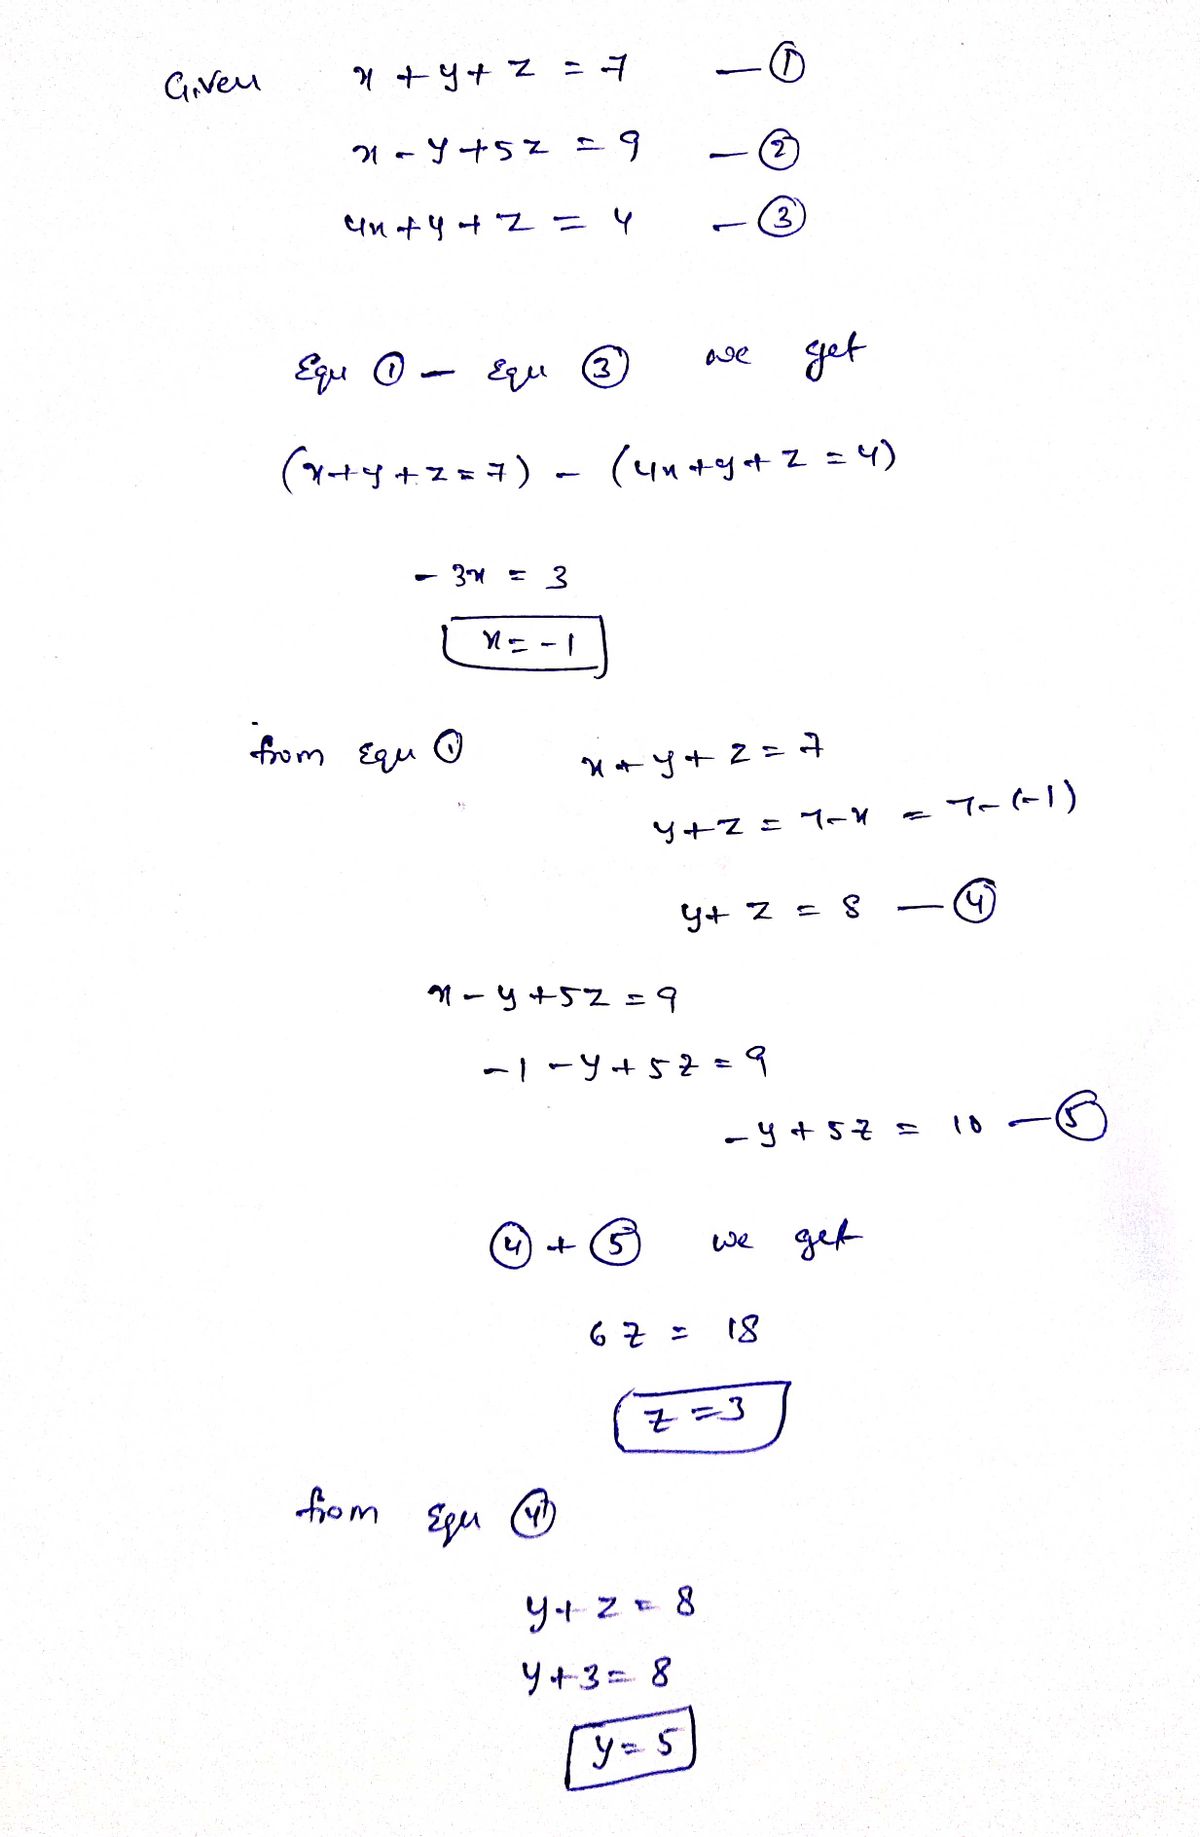 Given x + y + z = 7 — ①
x - y + 5z = 9 — ②
4x + y + z = 4 — ③
Equ ① — Equ ③ we get
(x + y + z = 7) - (4x + y + z = 4)
- 3x = 3
x = -1
from Equ ① x + y + z = 7
y + z = 7 - x = 7 - (-1)
y + z = 8 — ④
x - y + 5z = 9
-1 - y + 5z = 9
- y + 5z = 10 — ⑤
④ + ⑤ we get
6z = 18
z = 3
from Equ ④
y + z = 8
y + 3 = 8
y = 5